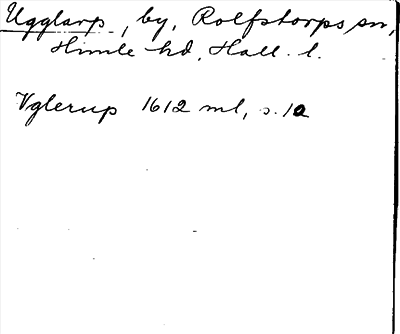 Ugglarp, by, Rolfstorps sn,
Himle hd, Hall. l.
Vglerup 1612 ml, s. 10